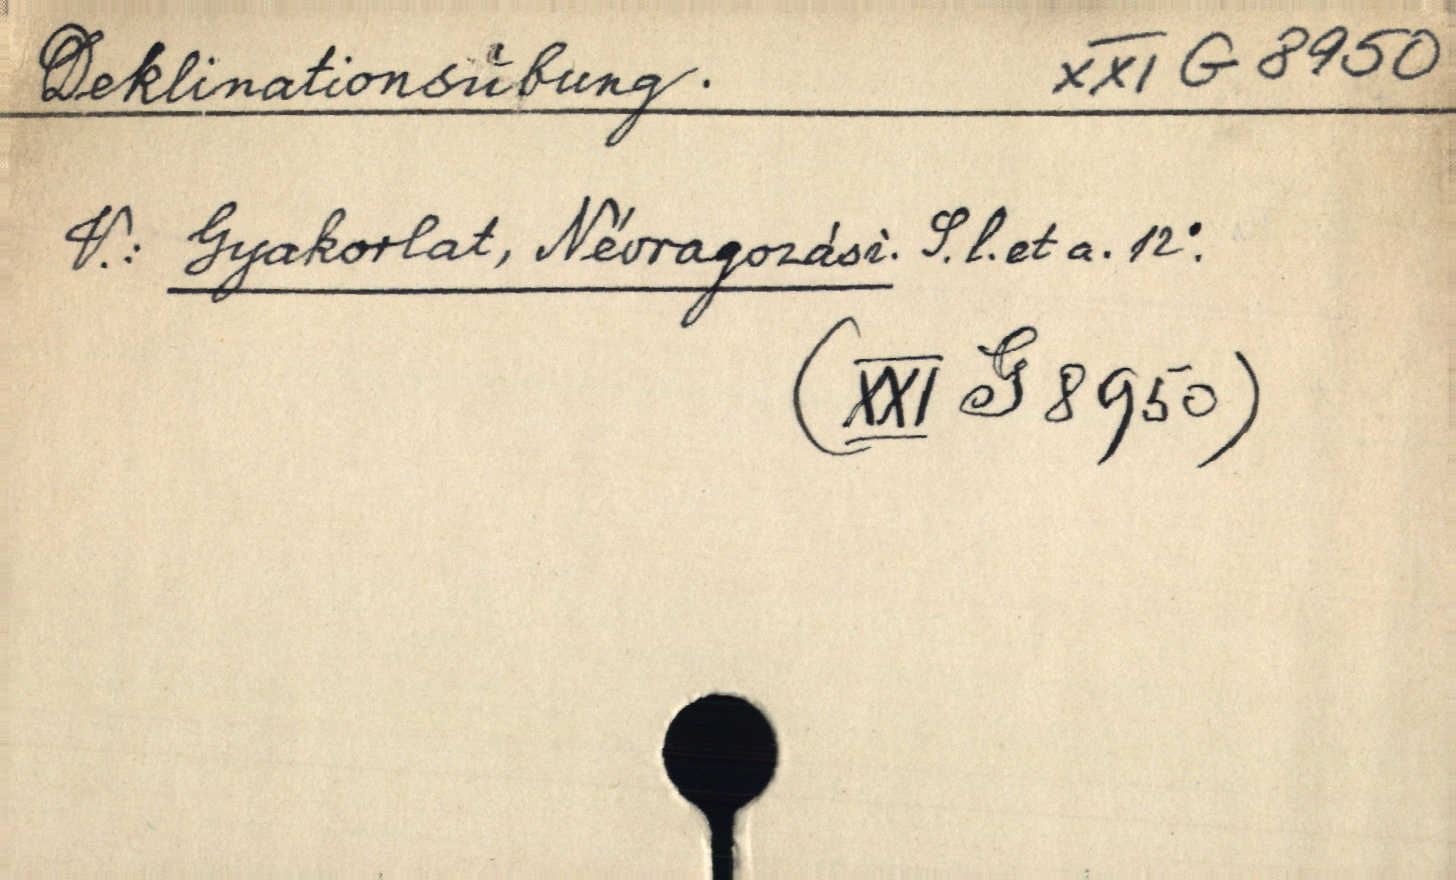 Deklinationsübung. XXI G 8950
V.: Gyakorlat, Névragozási. S. l. et a. 12°.
(XXI G 8950)